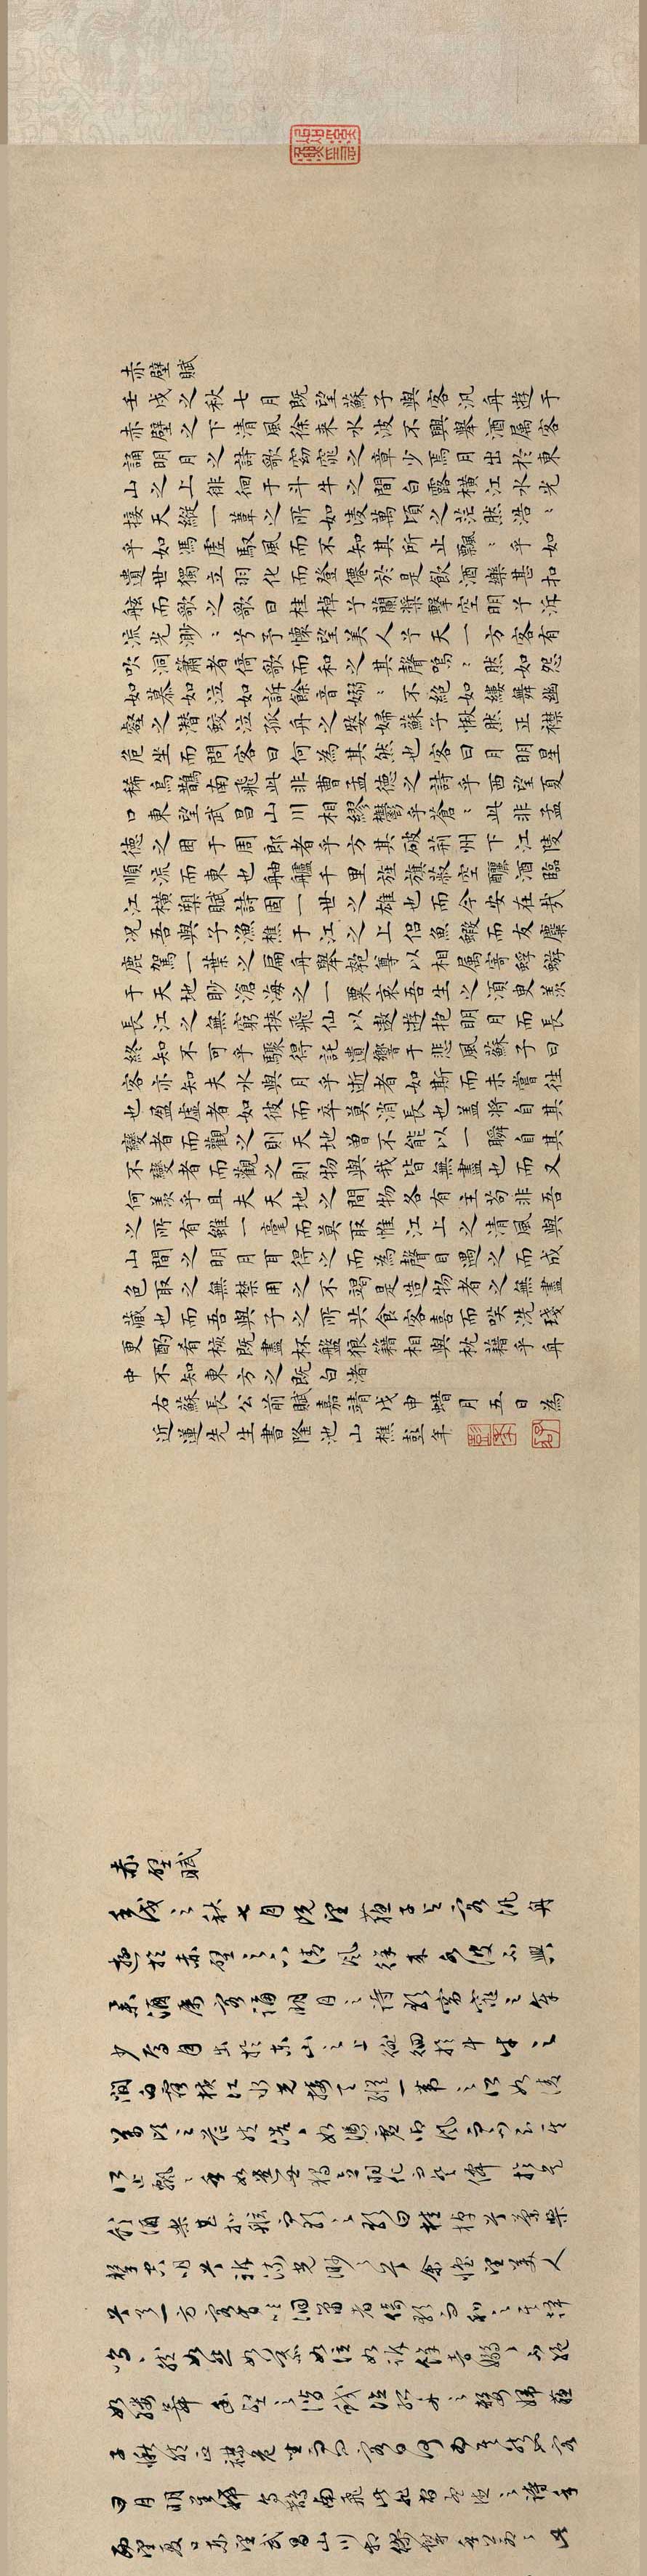 赤壁賦
壬戌之秋七月既望蘇子與客汎舟遊于
赤壁之下清風徐來水波不興舉酒屬客
誦明月之詩歌窈窕之章少焉月出於東
山之上徘徊于斗牛之間白露橫江水光
接天縱一葦之所如淩萬頃之茫然浩〻
乎如馮虛馭風而不知其所止飄〻乎如
遺世獨立羽化而登僊於是飲酒樂甚扣
舷而歌之歌曰桂棹兮蘭槳擊空明兮泝
流光渺〻兮予懷望美人兮天一方客有
吹洞簫者倚歌而和之其聲嗚〻然如怨
如慕如泣如訴餘音嫋〻不絕如縷舞幽
壑之潛蛟泣孤舟之嫠婦蘇子愀然正襟
危坐而問客曰何為其然也客曰月明星
稀烏鵲南飛此非曹孟德之詩乎西望夏
口東望武昌山川相繆鬱乎蒼〻此非孟
德之困于周郎者乎方其破荊州下江陵
順流而東也舳艫千里旌旗蔽空釃酒臨
江橫槊賦詩固一世之雄也而今安在哉
況吾與子漁樵于江之上侶魚鰕而友麋
鹿駕一葉之扁舟舉匏尊以相屬寄蜉蝣
于天地眇滄海之一粟哀吾生之須臾羨
長江之無窮挾飛仙以遨遊抱明月而長
終知不可乎驟得託遺響于悲風蘇子曰
客亦知夫水與月乎逝者如斯而未嘗往
也盈虛者如彼而卒莫消長也盖將自其
變者而觀之則天地曾不能以一瞬自其
不變者而觀之則物與我皆無盡也而又
何羨乎且夫天地之間物各有主苟非吾
之所有雖一毫而莫取惟江上之清風與
山間之明月耳得之而為聲目遇之而成
色取之無禁用之不竭是造物者之無盡
藏也而吾與子之所共食客喜而笑洗琖
更酌肴核既盡杯盤狼籍相與枕藉乎舟
中不知東方之既白渚
右蘇長公前賦嘉靖戊申蜡月五日為
近蓮先生書隆池山樵彭年
赤壁賦
壬戌之秋七月既望蘇子與客汎舟
遊於赤壁之下清風徐來水波不興
舉酒屬客誦明月之詩歌窈窕之章
少焉月出於東山之上徘徊於斗牛之
間白露橫江水光接天縱一葦之所如淩
萬頃之茫然浩〻如馮虛御風而不知其
所止飄〻乎如遺世獨立羽化而登僊於是
飲酒樂甚扣舷而歌之歌曰桂棹兮蘭槳
擊空明兮泝流光渺〻兮余懷望美人
兮天一方客有吹洞簫者倚歌而和之其聲
嗚〻然如怨如慕如泣如訴餘音嫋〻不絕
如縷舞幽壑之潛蛟泣孤舟之嫠婦蘇
子愀然正襟危坐而問客曰何為其然也客
曰月明星稀烏鵲南飛此非曹孟德之詩乎
西望夏口東望武昌山川相繆鬱乎蒼〻此